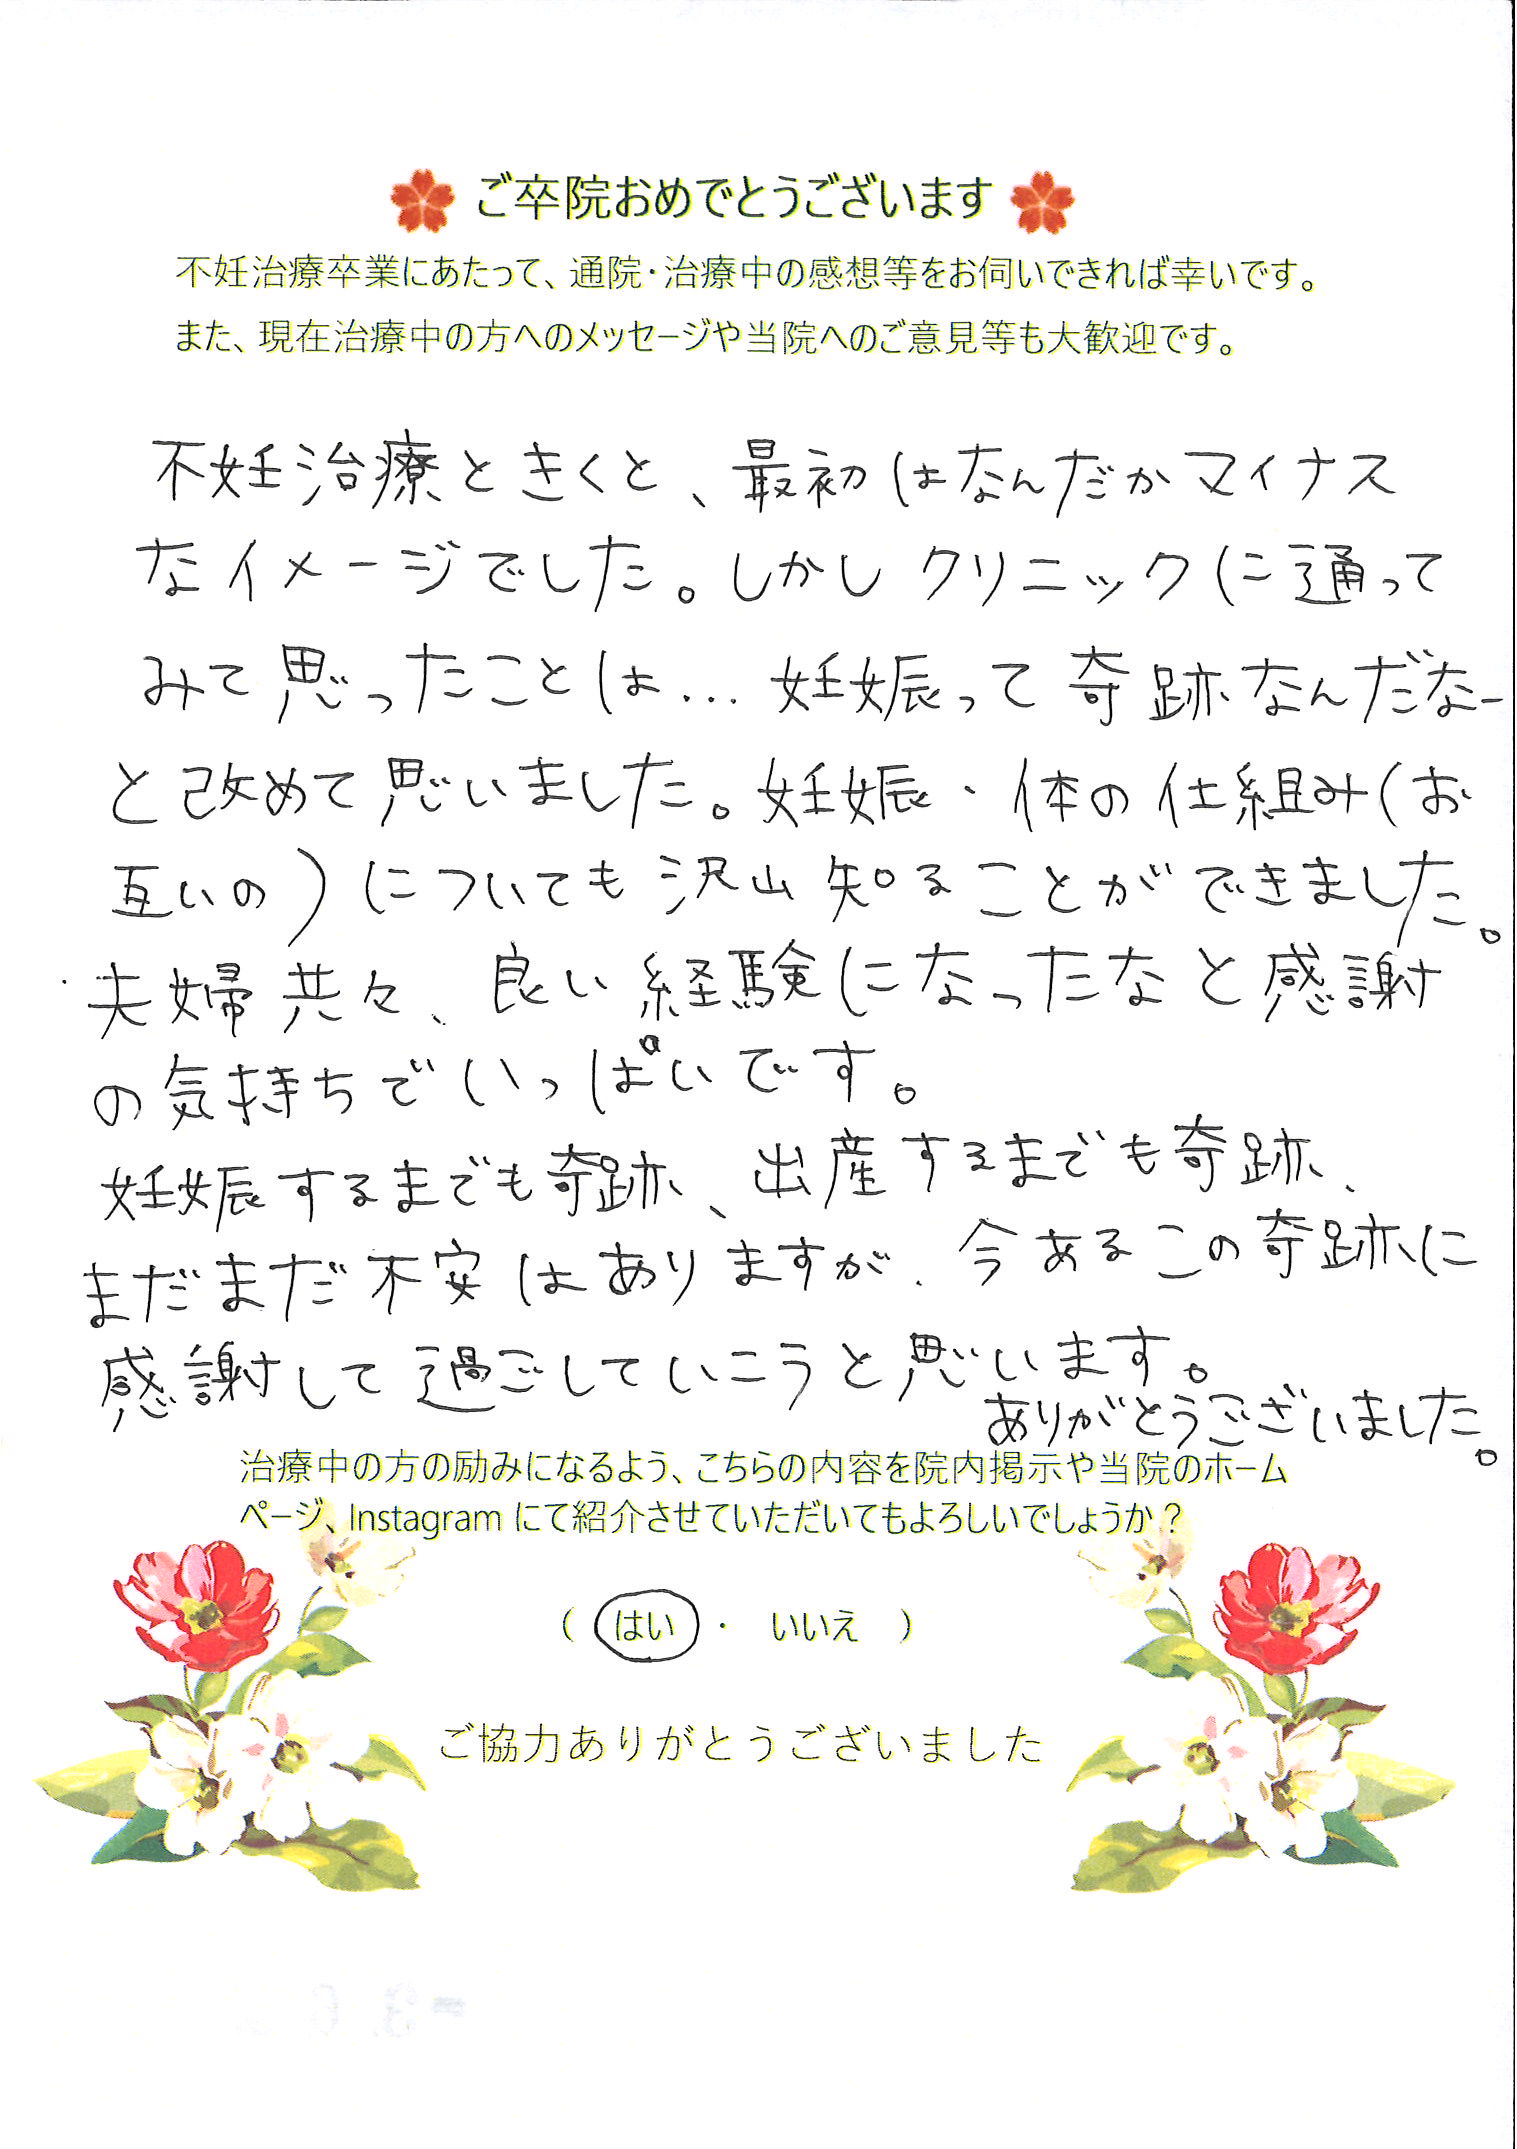 ご卒院おめでとうございます
不妊治療卒業にあたって、通院・治療中の感想等をお伺いできれば幸いです。
また、現在治療中の方へのメッセージや当院へのご意見等も大歓迎です。
不妊治療ときくと、最初はなんだかマイナス
なイメージでした。しかしクリニックに通って
みて思ったことは…妊娠って奇跡なんだなー
と改めて思いました。妊娠・体の仕組み(お
互いの)についても沢山知ることができました。
夫婦共々、良い経験になったなと感謝
の気持ちでいっぱいです。
妊娠するまでも奇跡、出産するまでも奇跡、
まだまだ不安はありますが、今あるこの奇跡に
感謝して過ごしていこうと思います。
ありがとうございました。
治療中の方の励みになるよう、こちらの内容を院内掲示や当院のホーム
ページ、Instagram にて紹介させていただいてもよろしいでしょうか？
（ はい ・ いいえ ）
ご協力ありがとうございました